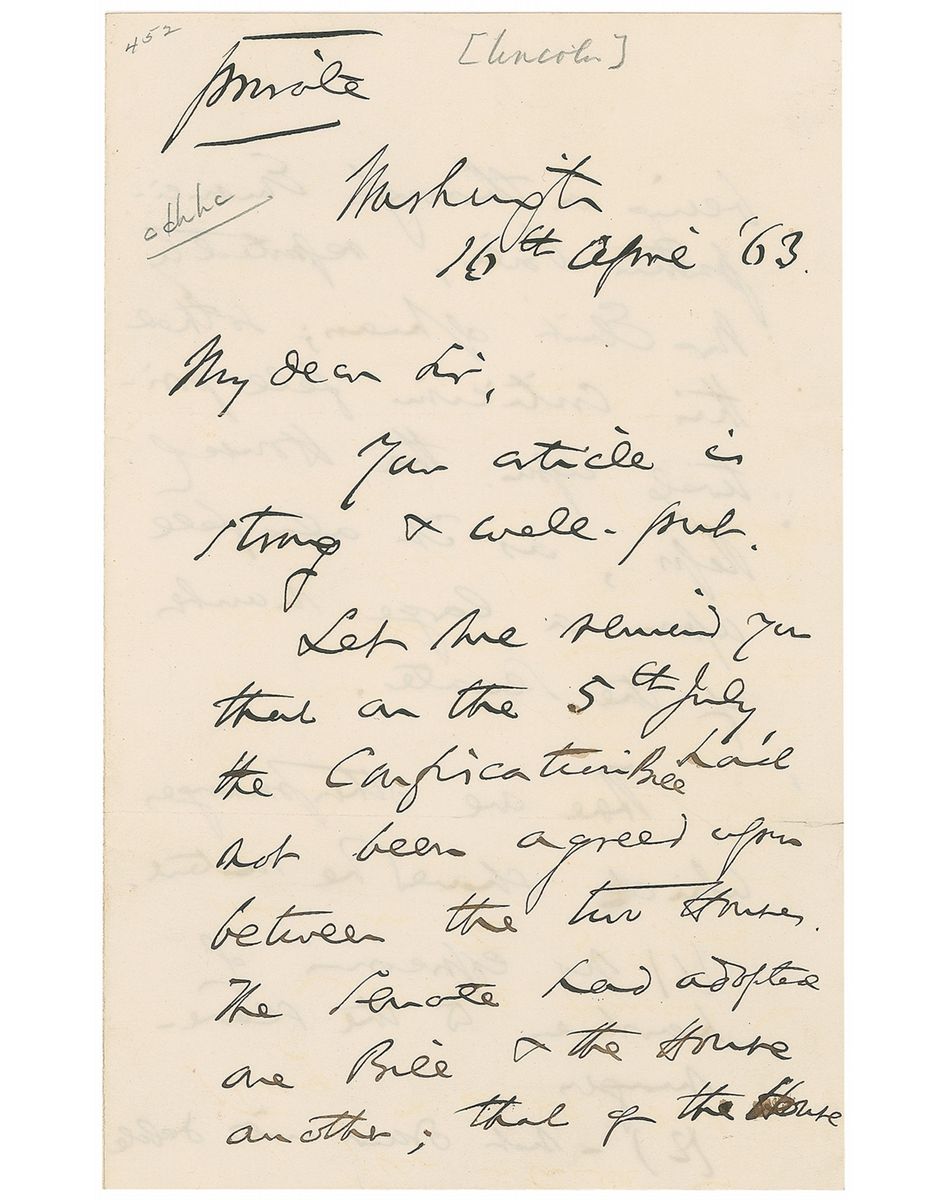 452
[Lincoln]
Private
Washington
16th April '63.
My dear Sir,
Your article is
strong & well-put.
Let me remind you
that on the 5th July,
the Confiscation Bill had
not been agreed upon
between the two Houses.
The Senate had adopted
one Bill & the House
another; that of the House